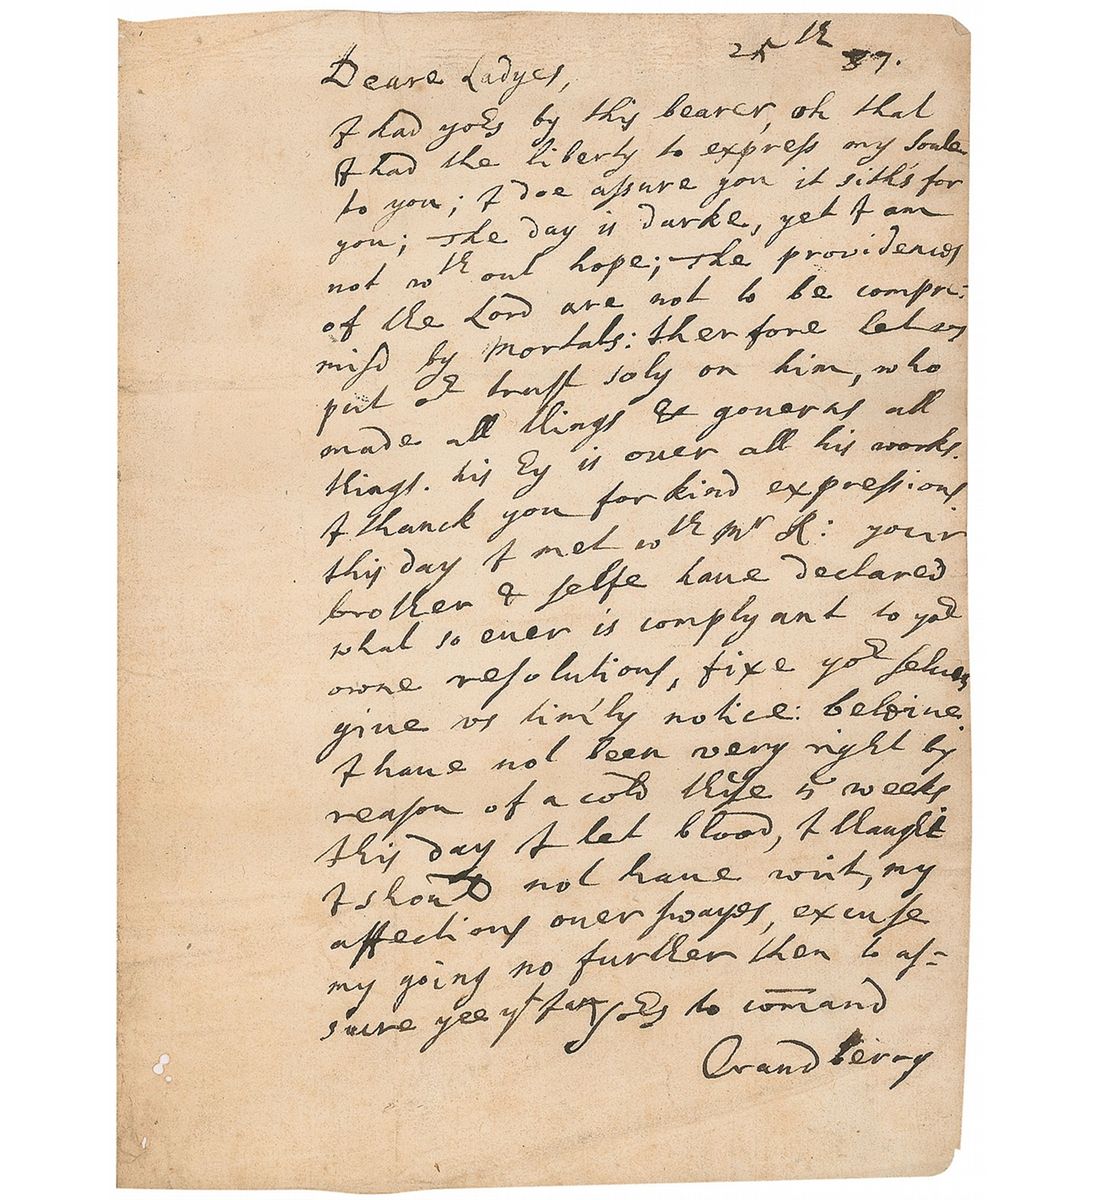 25th 87.
Deare Ladyes,
I had yors by this bearer, oh that
I had the liberty to express my soule
to you; I doe assure you it siths for
you; The day is darke, yet I am
not wth out hope; The providences
of the Lord are not to be compri=
misd by mortals: therfore let us
put or trust soly on him, who
made all things & governs all
things. his Ey is over all his works.
I thanck you for kind expressions
this day I met wth Mr R: your
brother & selfe have declared
what so ever is complyant to yor
owne resolutions, fixe yor selves
give us tim'ly notice: beleive
I have not been very right by
reason of a cold these 5 weeks
this day I let blood, I thaught
I shoud not have writ, my
affections over swayes, excuse
my going no further then to as=
sure yee yt I am yors to comand
Crandberry